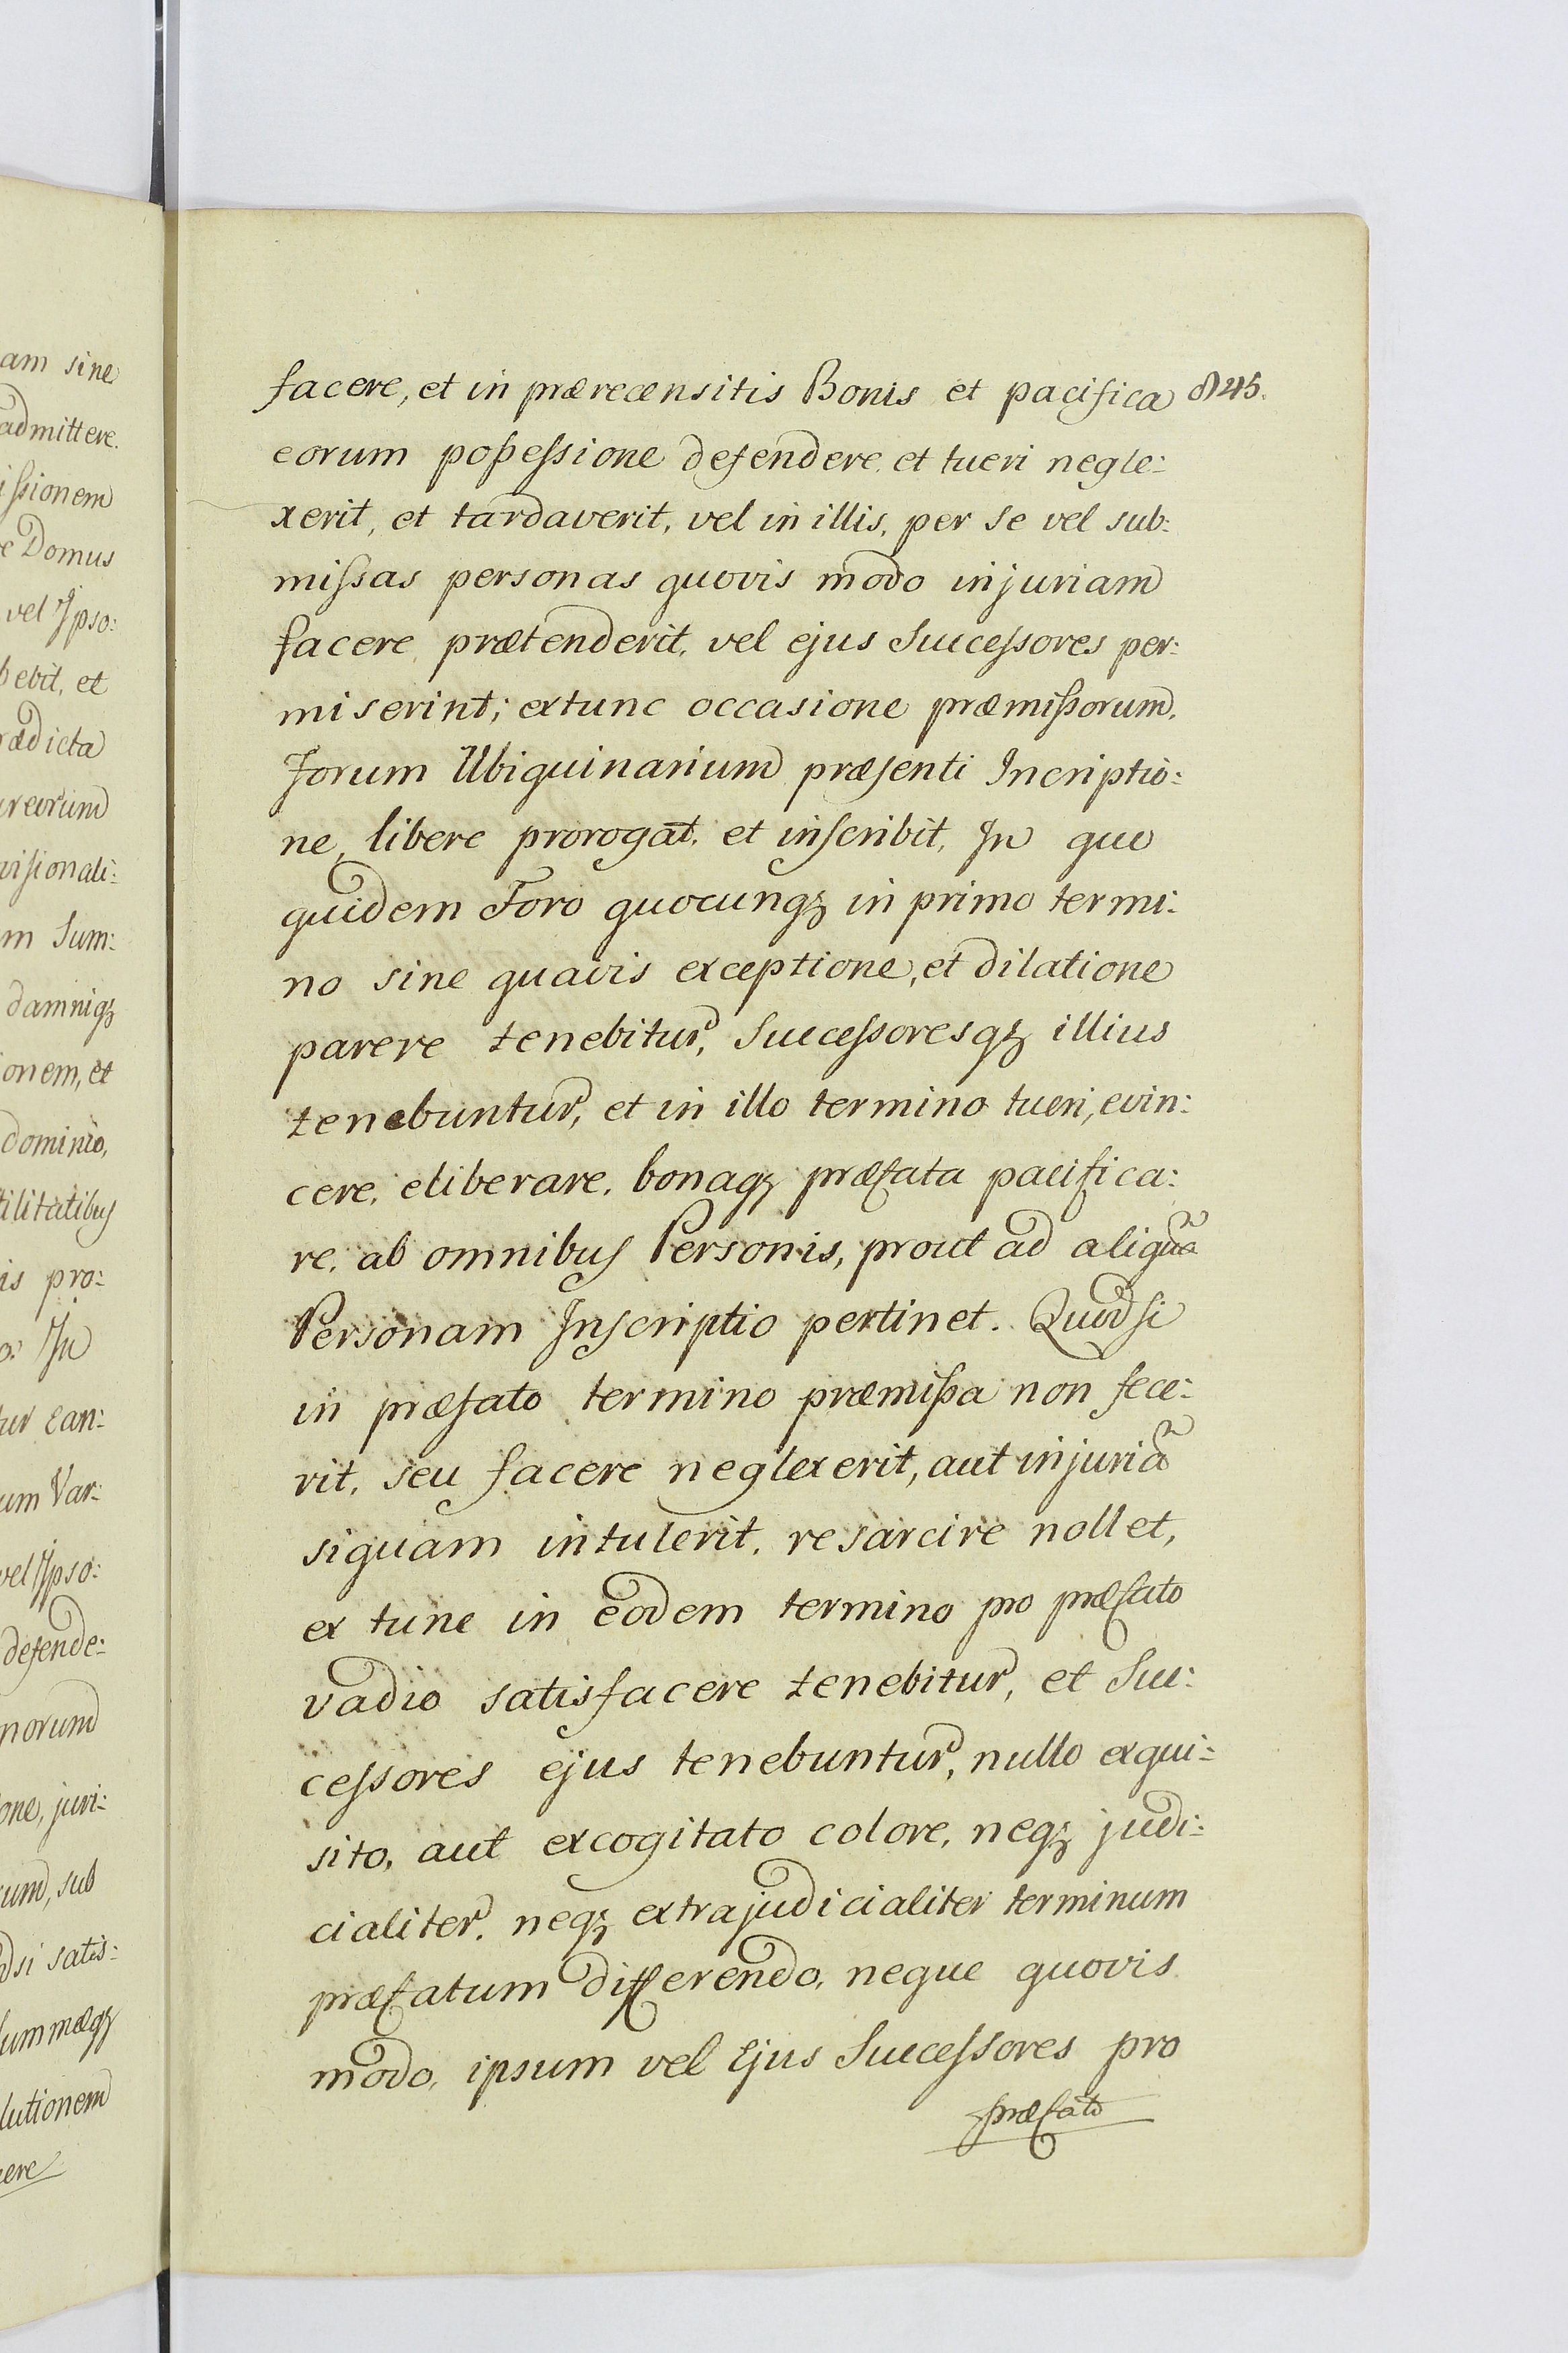 am sine
admittere.
issionem
e Domus
vel Ipso:
bebit, et
rædicta
ureorum
visionali:
m Sum:
damniqz
ionem, et
dominio,
tilitatibus
is pro:
o: In
tur ean:
um Var:
vel Ipso:
defende:
norum
one, juri:
rum, sub
dsi satis:
summæqz
lutionem
cere
facere, et in prærecensitis Bonis et pacifica 845.
eorum possessione defendere et tueri negle:
xerit, et tardaverit, vel in illis, per se vel sub:
missas personas quovis modo injuriam
facere prætenderit, vel ejus Successores per:
miserint; extunc occasione præmissorum,
Forum Ubiquinarium præsenti Incriptio:
ne, libere prorogat, et inscribit, In quo
quidem Foro quocunqz in primo termi:
no sine quavis exceptione, et dilatione
parere tenebitur, Successoresqz illius
tenebuntur, et in illo termino tueri, evin:
cere, eliberare, bonaqz præfata pacifica:
re, ab omnibus Personis, prout ad aliquã
Personam Inscriptio pertinet. Quod si
in præfato termino præmissa non fece:
rit, seu facere neglexerit, aut injuriã
siquam intulerit, resarcire nollet,
ex tunc in eodem termino pro præfato
vadio satisfacere tenebitur, et Suc:
cessores ejus tenebuntur, nullo exqui:
sito, aut excogitato colore, neqz judi:
cialiter, neqz extrajudicialiter terminum
præfatum differendo, neque quovis
modo, ipsum vel Ejus Successores pro
præfato